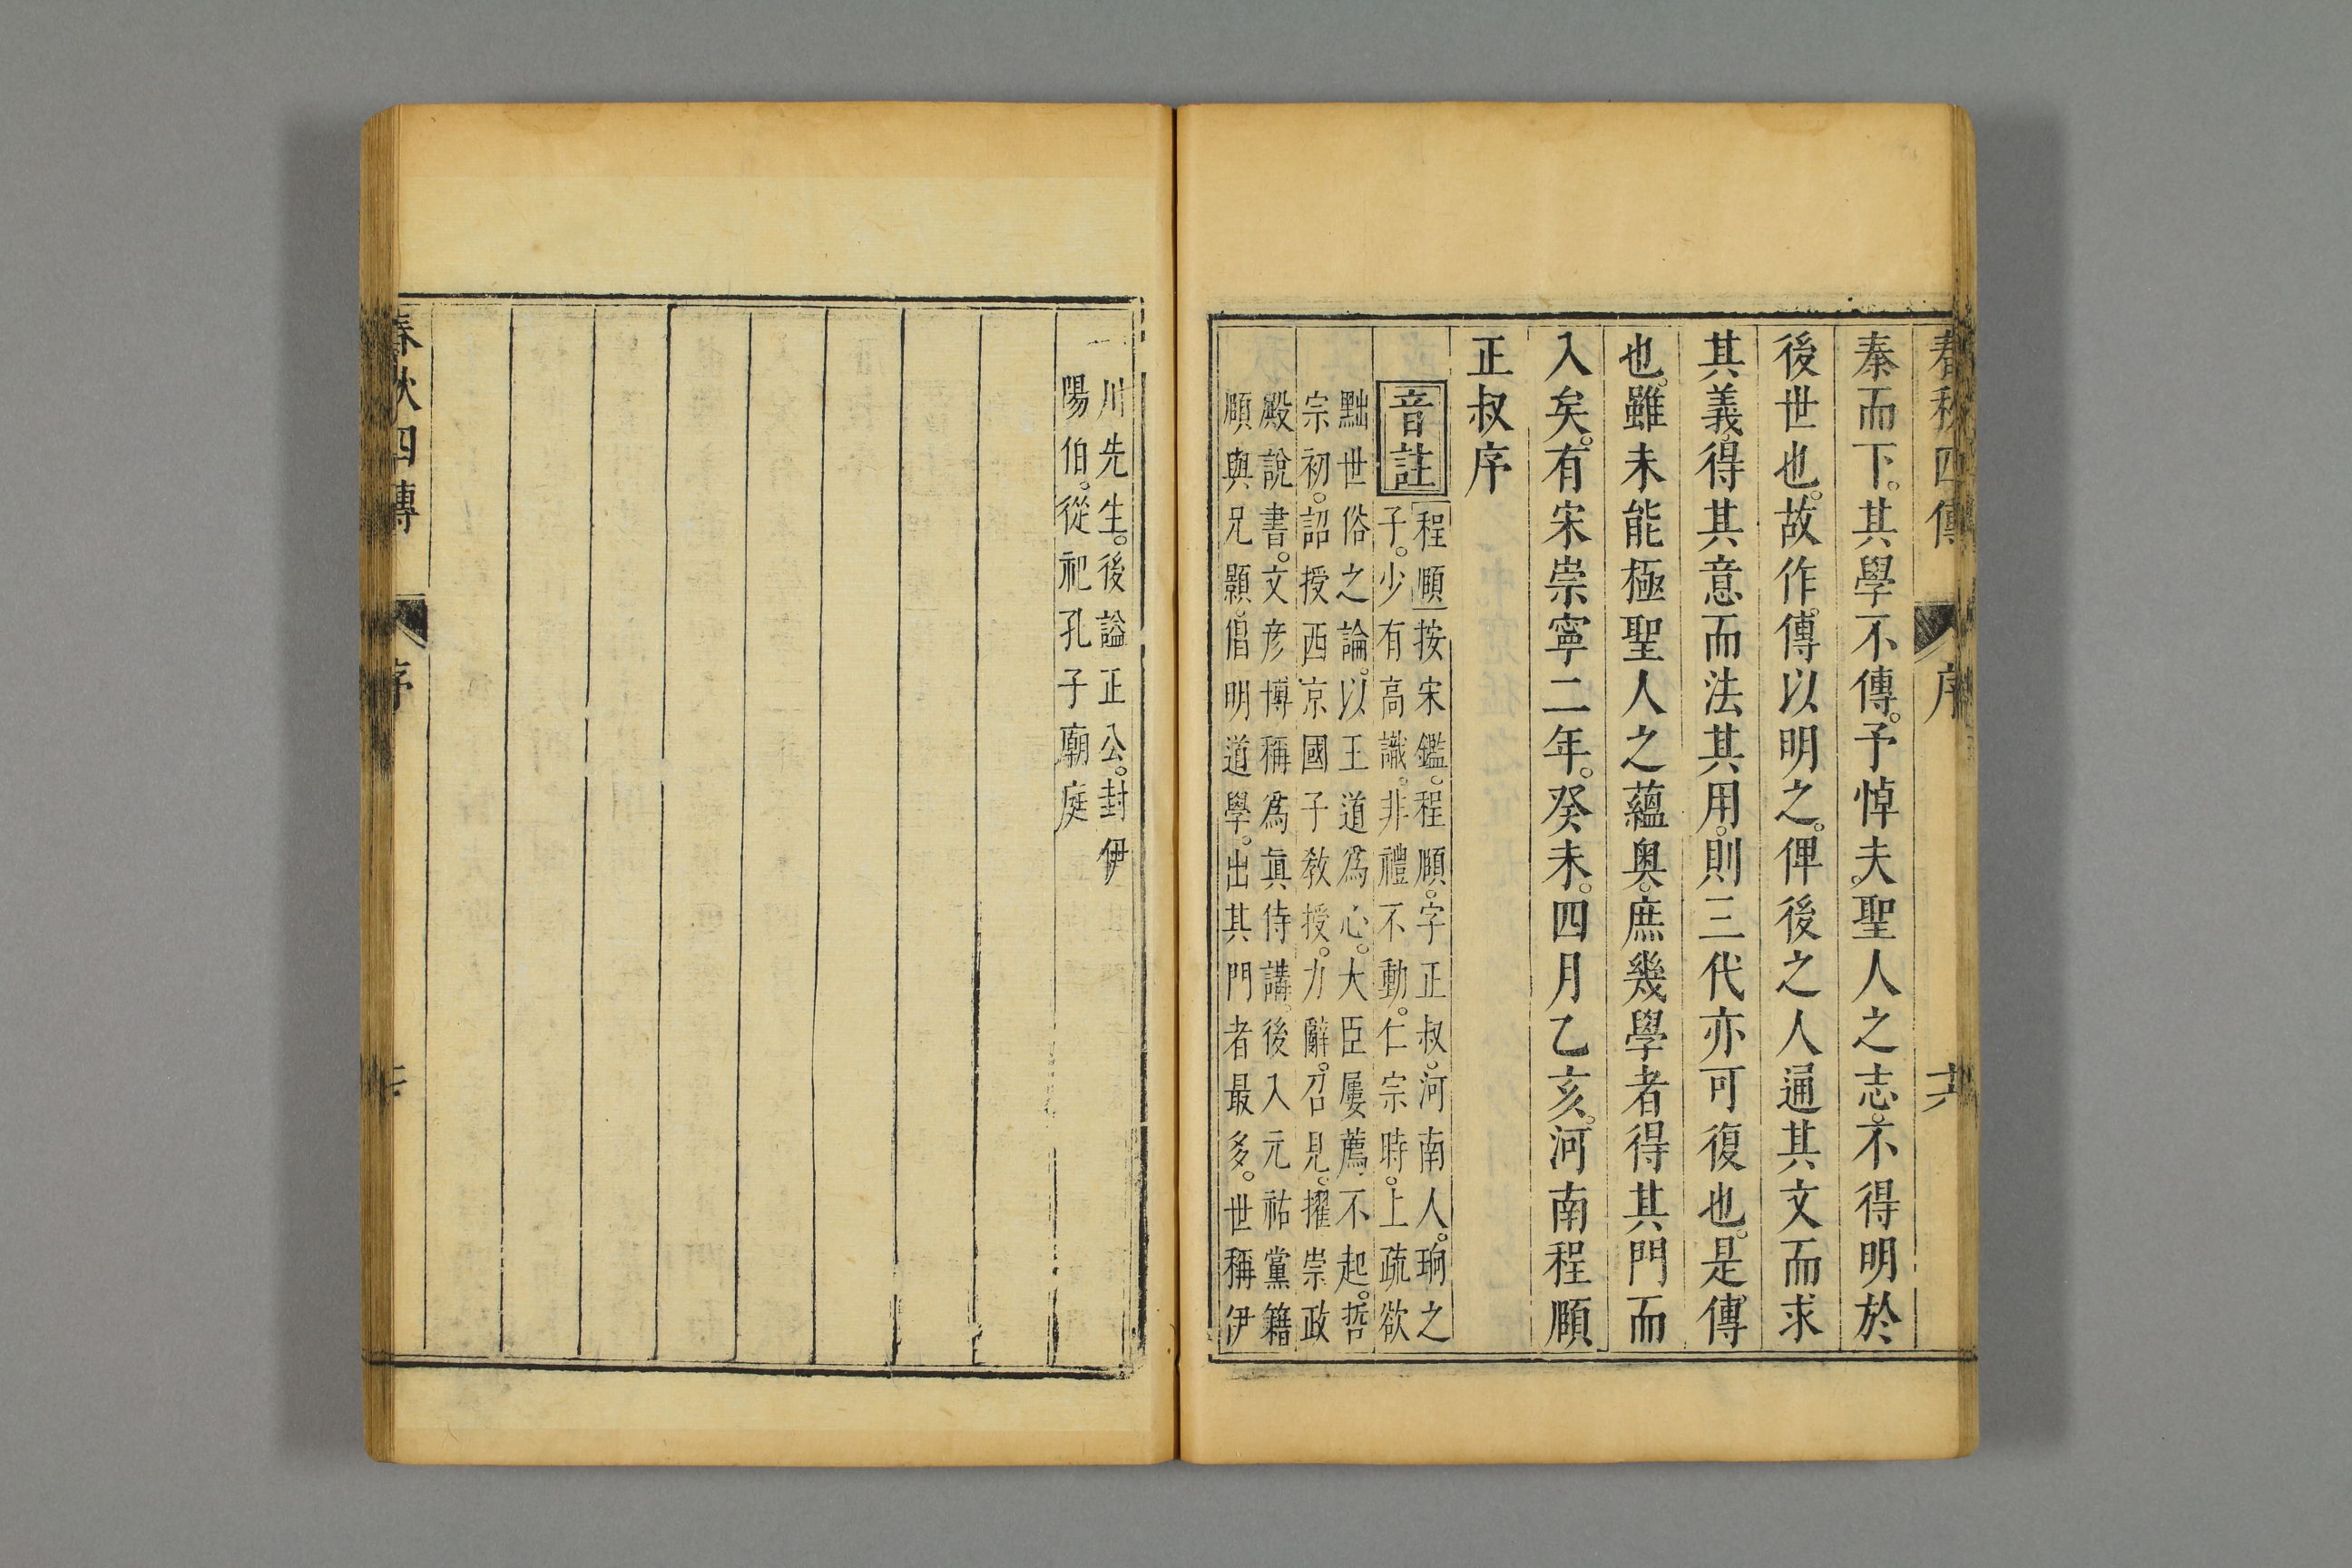 春秋四傳 序 六
秦而下。其學不傳。予悼夫。聖人之志。不得明於
後世也。故作。傳以明之。俾後之人通其文而求
其義。得其意而法其用。則三代亦可復也。是。傳
也。雖未能極聖人之蘊奧。庶幾學者得其門而
入矣。有宋崇寧二年。癸未。四月乙亥。河南程頤
正叔序
音註
程頤按宋鑑。程頤。字正叔。河南人。珦之
子。少有高識。非禮不動。仁宗時。上疏欲
黜世俗之論。以王道爲心。大臣屢薦。不起。哲
宗初。詔授西京國子教授。力辭。召見。擢崇政
殿說書。文彥博稱爲眞侍講。後入元祐黨籍
頤與兄顥。倡明道學。出其門者最多。世稱伊
川先生。後諡正公。封伊
陽伯。從祀孔子廟庭
春秋四傳 序 七